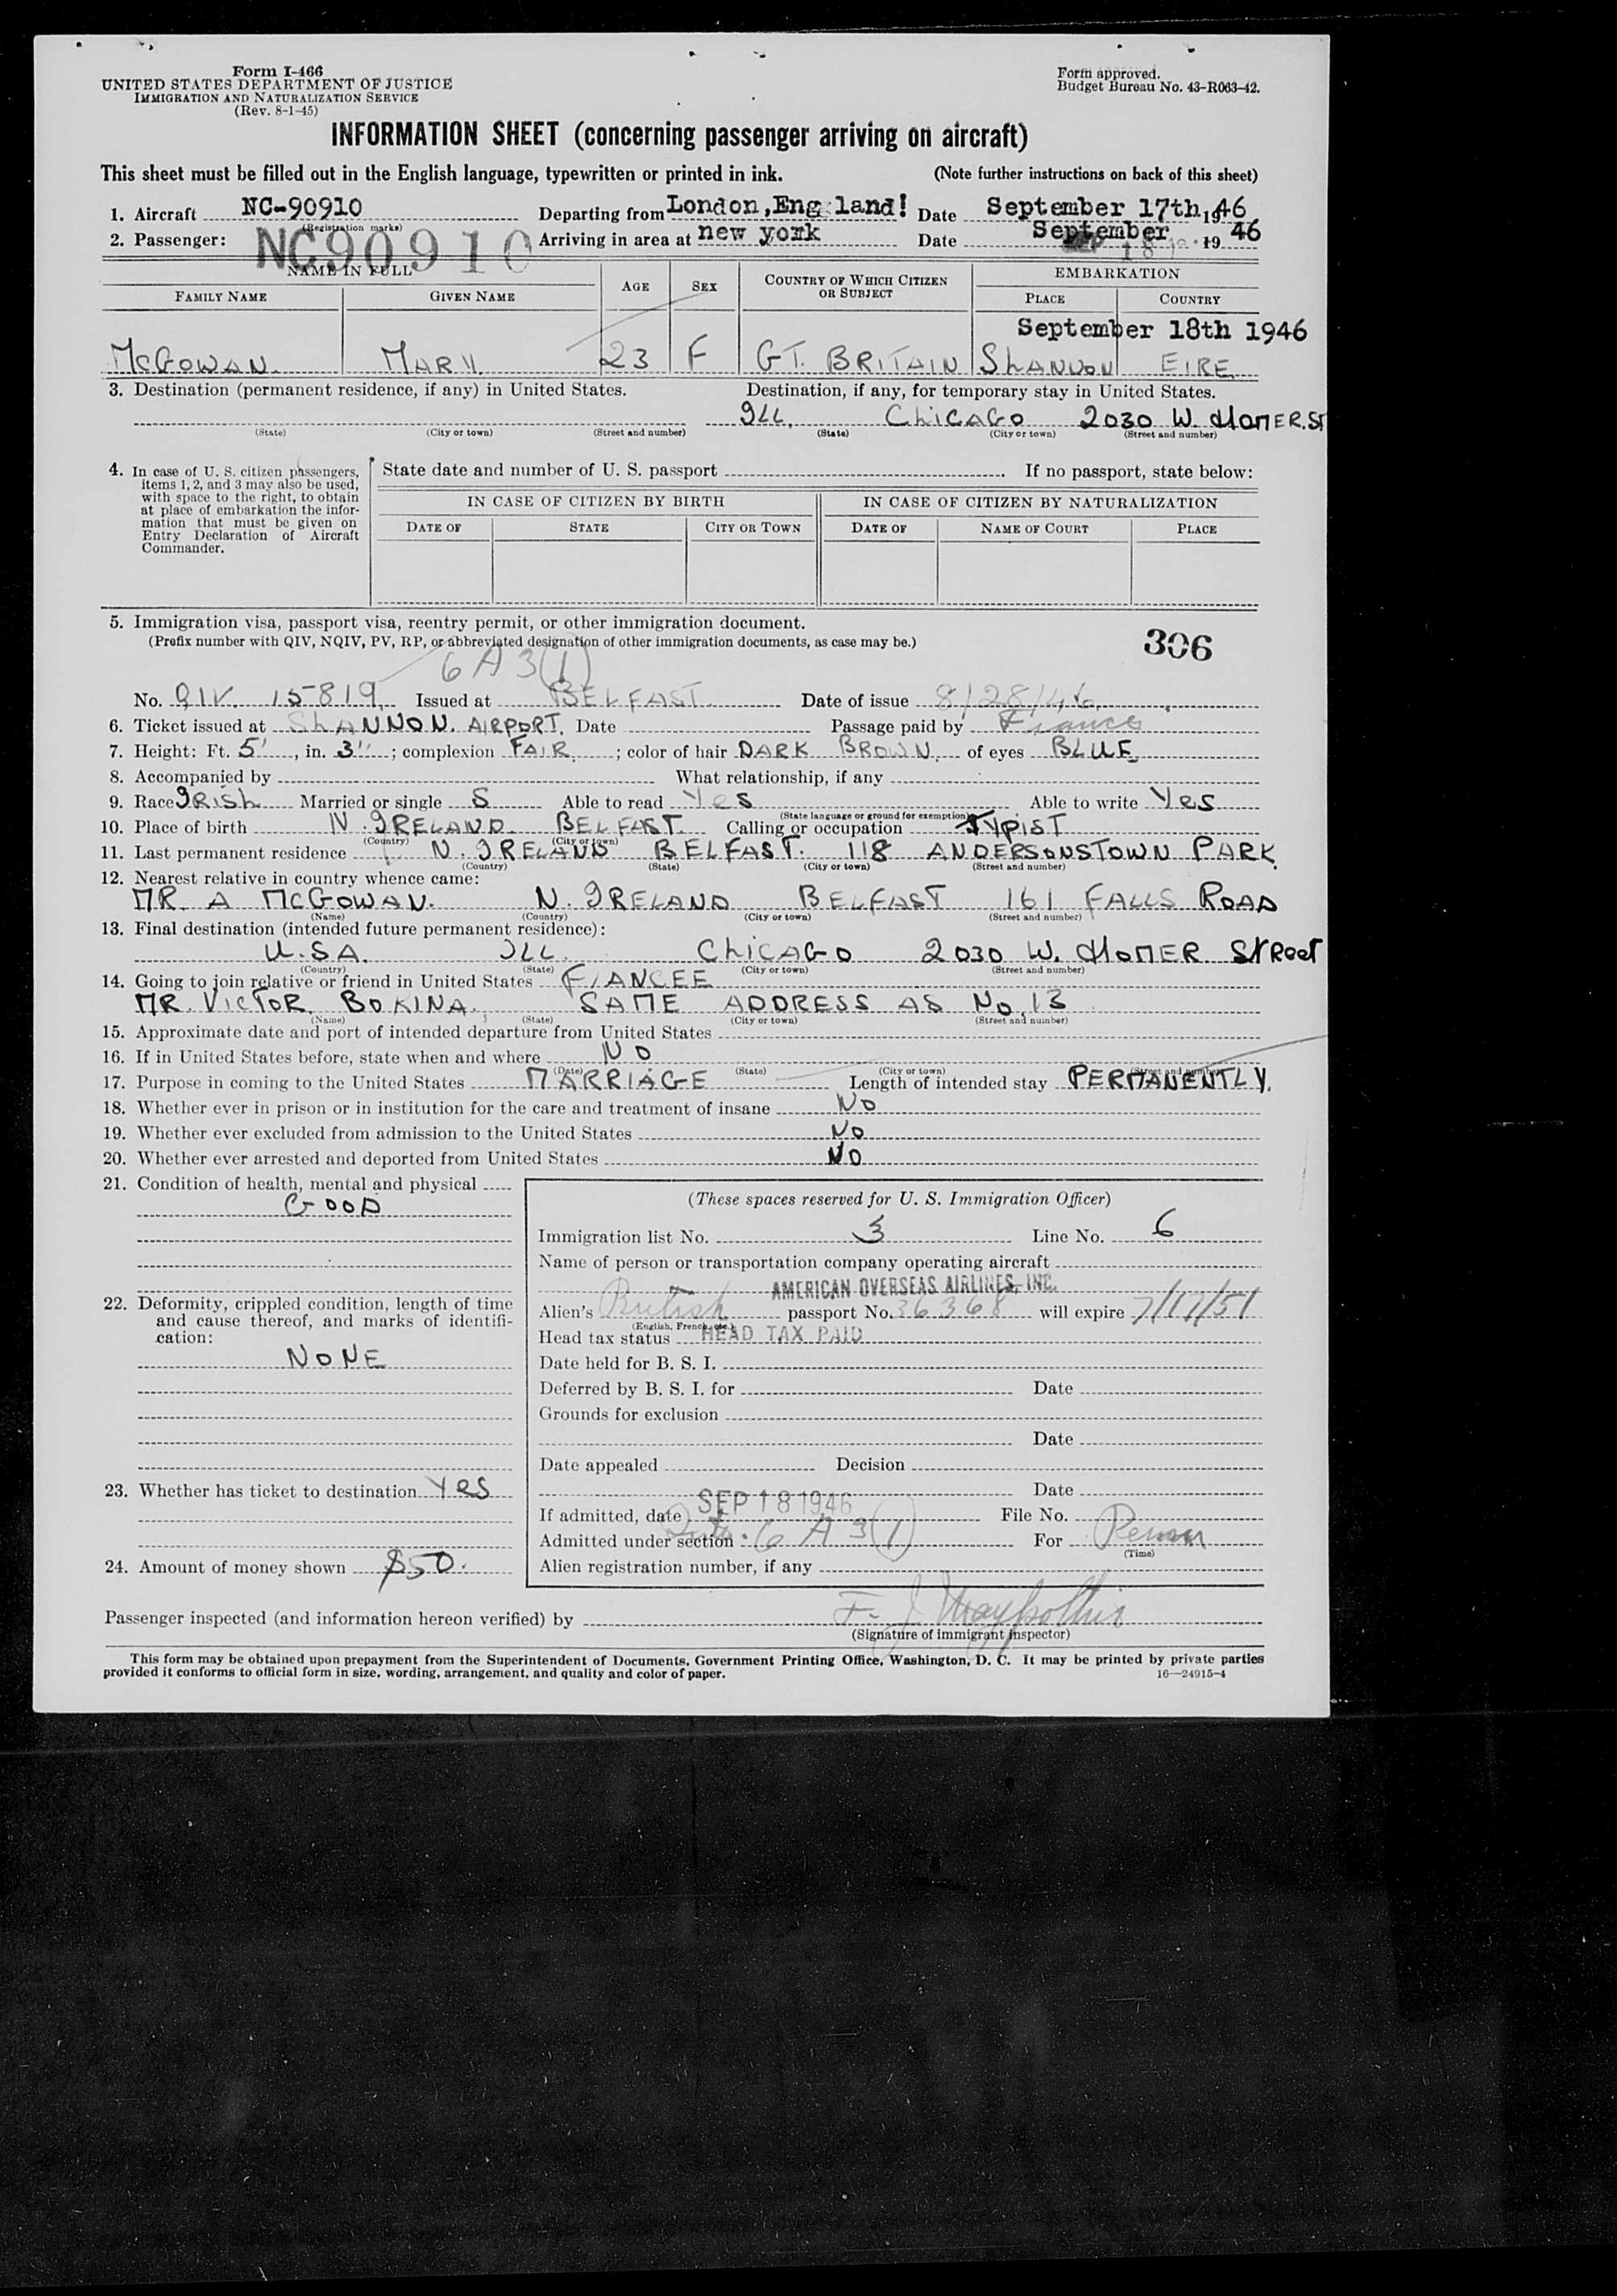 Form I-466
UNITED STATES DEPARTMENT OF JUSTICE
IMMIGRATION AND NATURALIZATION SERVICE
(Rev. 8-1-45)
Form approved.
Budget Bureau No. 43-R063-42.
INFORMATION SHEET (concerning passenger arriving on aircraft)
This sheet must be filled out in the English language, typewritten or printed in ink. (Note further instructions on back of this sheet)
1. Aircraft NC-90910 Departing from London, England! Date September 17th, 1946
(Registration marks)
2. Passenger: NC90910 Arriving in area at new york Date September 18 1946
NAME IN FULL AGE SEX COUNTRY OF WHICH CITIZEN OR SUBJECT EMBARKATION
FAMILY NAME GIVEN NAME PLACE COUNTRY
September 18th 1946
McGOWAN. MARY. 23 F GT. BRITAIN SHANNON EIRE
3. Destination (permanent residence, if any) in United States. Destination, if any, for temporary stay in United States.
ILL. CHICAGO 2030 W. HOMER. ST
(State) (City or town) (Street and number) (State) (City or town) (Street and number)
4. In case of U. S. citizen passengers, items 1, 2, and 3 may also be used, with space to the right, to obtain at place of embarkation the information that must be given on Entry Declaration of Aircraft Commander.
State date and number of U. S. passport If no passport, state below:
IN CASE OF CITIZEN BY BIRTH IN CASE OF CITIZEN BY NATURALIZATION
DATE OF STATE CITY OR TOWN DATE OF NAME OF COURT PLACE
5. Immigration visa, passport visa, reentry permit, or other immigration document.
(Prefix number with QIV, NQIV, PV, RP, or abbreviated designation of other immigration documents, as case may be.)
306
6 A 3 (1)
No. QIV. 15819. Issued at BELFAST. Date of issue 8/28/46
6. Ticket issued at SHANNON. AIRPORT. Date Passage paid by Fiance
7. Height: Ft. 5', in. 3"; complexion FAIR.; color of hair DARK BROWN. of eyes BLUE
8. Accompanied by What relationship, if any
9. Race IRISH Married or single S Able to read Yes Able to write Yes
(State language or ground for exemption)
10. Place of birth N. IRELAND. BELFAST. Calling or occupation TYPIST
(Country) (City or town)
11. Last permanent residence N. IRELAND BELFAST. 118 ANDERSONSTOWN PARK.
(Country) (State) (City or town) (Street and number)
12. Nearest relative in country whence came:
MR. A McGOWAN. N. IRELAND BELFAST 161 FALLS ROAD
(Name) (Country) (City or town) (Street and number)
13. Final destination (intended future permanent residence):
U.S.A. ILL. CHICAGO 2030 W. HOMER STREET
(Country) (State) (City or town) (Street and number)
14. Going to join relative or friend in United States FIANCEE
MR. VICTOR BOKINA. SAME ADDRESS AS No. 13
(Name) (State) (City or town) (Street and number)
15. Approximate date and port of intended departure from United States
16. If in United States before, state when and where NO
(Date) (State) (City or town) (Street and number)
17. Purpose in coming to the United States MARRIAGE Length of intended stay PERMANENTLY.
18. Whether ever in prison or in institution for the care and treatment of insane NO
19. Whether ever excluded from admission to the United States NO
20. Whether ever arrested and deported from United States NO
21. Condition of health, mental and physical
GOOD
22. Deformity, crippled condition, length of time and cause thereof, and marks of identification:
NONE
23. Whether has ticket to destination Yes
24. Amount of money shown $50.
(These spaces reserved for U. S. Immigration Officer)
Immigration list No. 3 Line No. 6
Name of person or transportation company operating aircraft
AMERICAN OVERSEAS AIRLINES, INC.
Alien's British passport No. 36368 will expire 7/17/51
(English, French, etc.)
Head tax status HEAD TAX PAID
Date held for B. S. I.
Deferred by B. S. I. for Date
Grounds for exclusion
Date
Date appealed Decision
Date
If admitted, date SEP 18 1946 File No.
Admitted under section 6 A 3 (1) For
(Time)
Alien registration number, if any
Passenger inspected (and information hereon verified) by
(Signature of immigrant inspector)
This form may be obtained upon prepayment from the Superintendent of Documents, Government Printing Office, Washington, D. C. It may be printed by private parties
provided it conforms to official form in size, wording, arrangement, and quality and color of paper. 16—24915-4